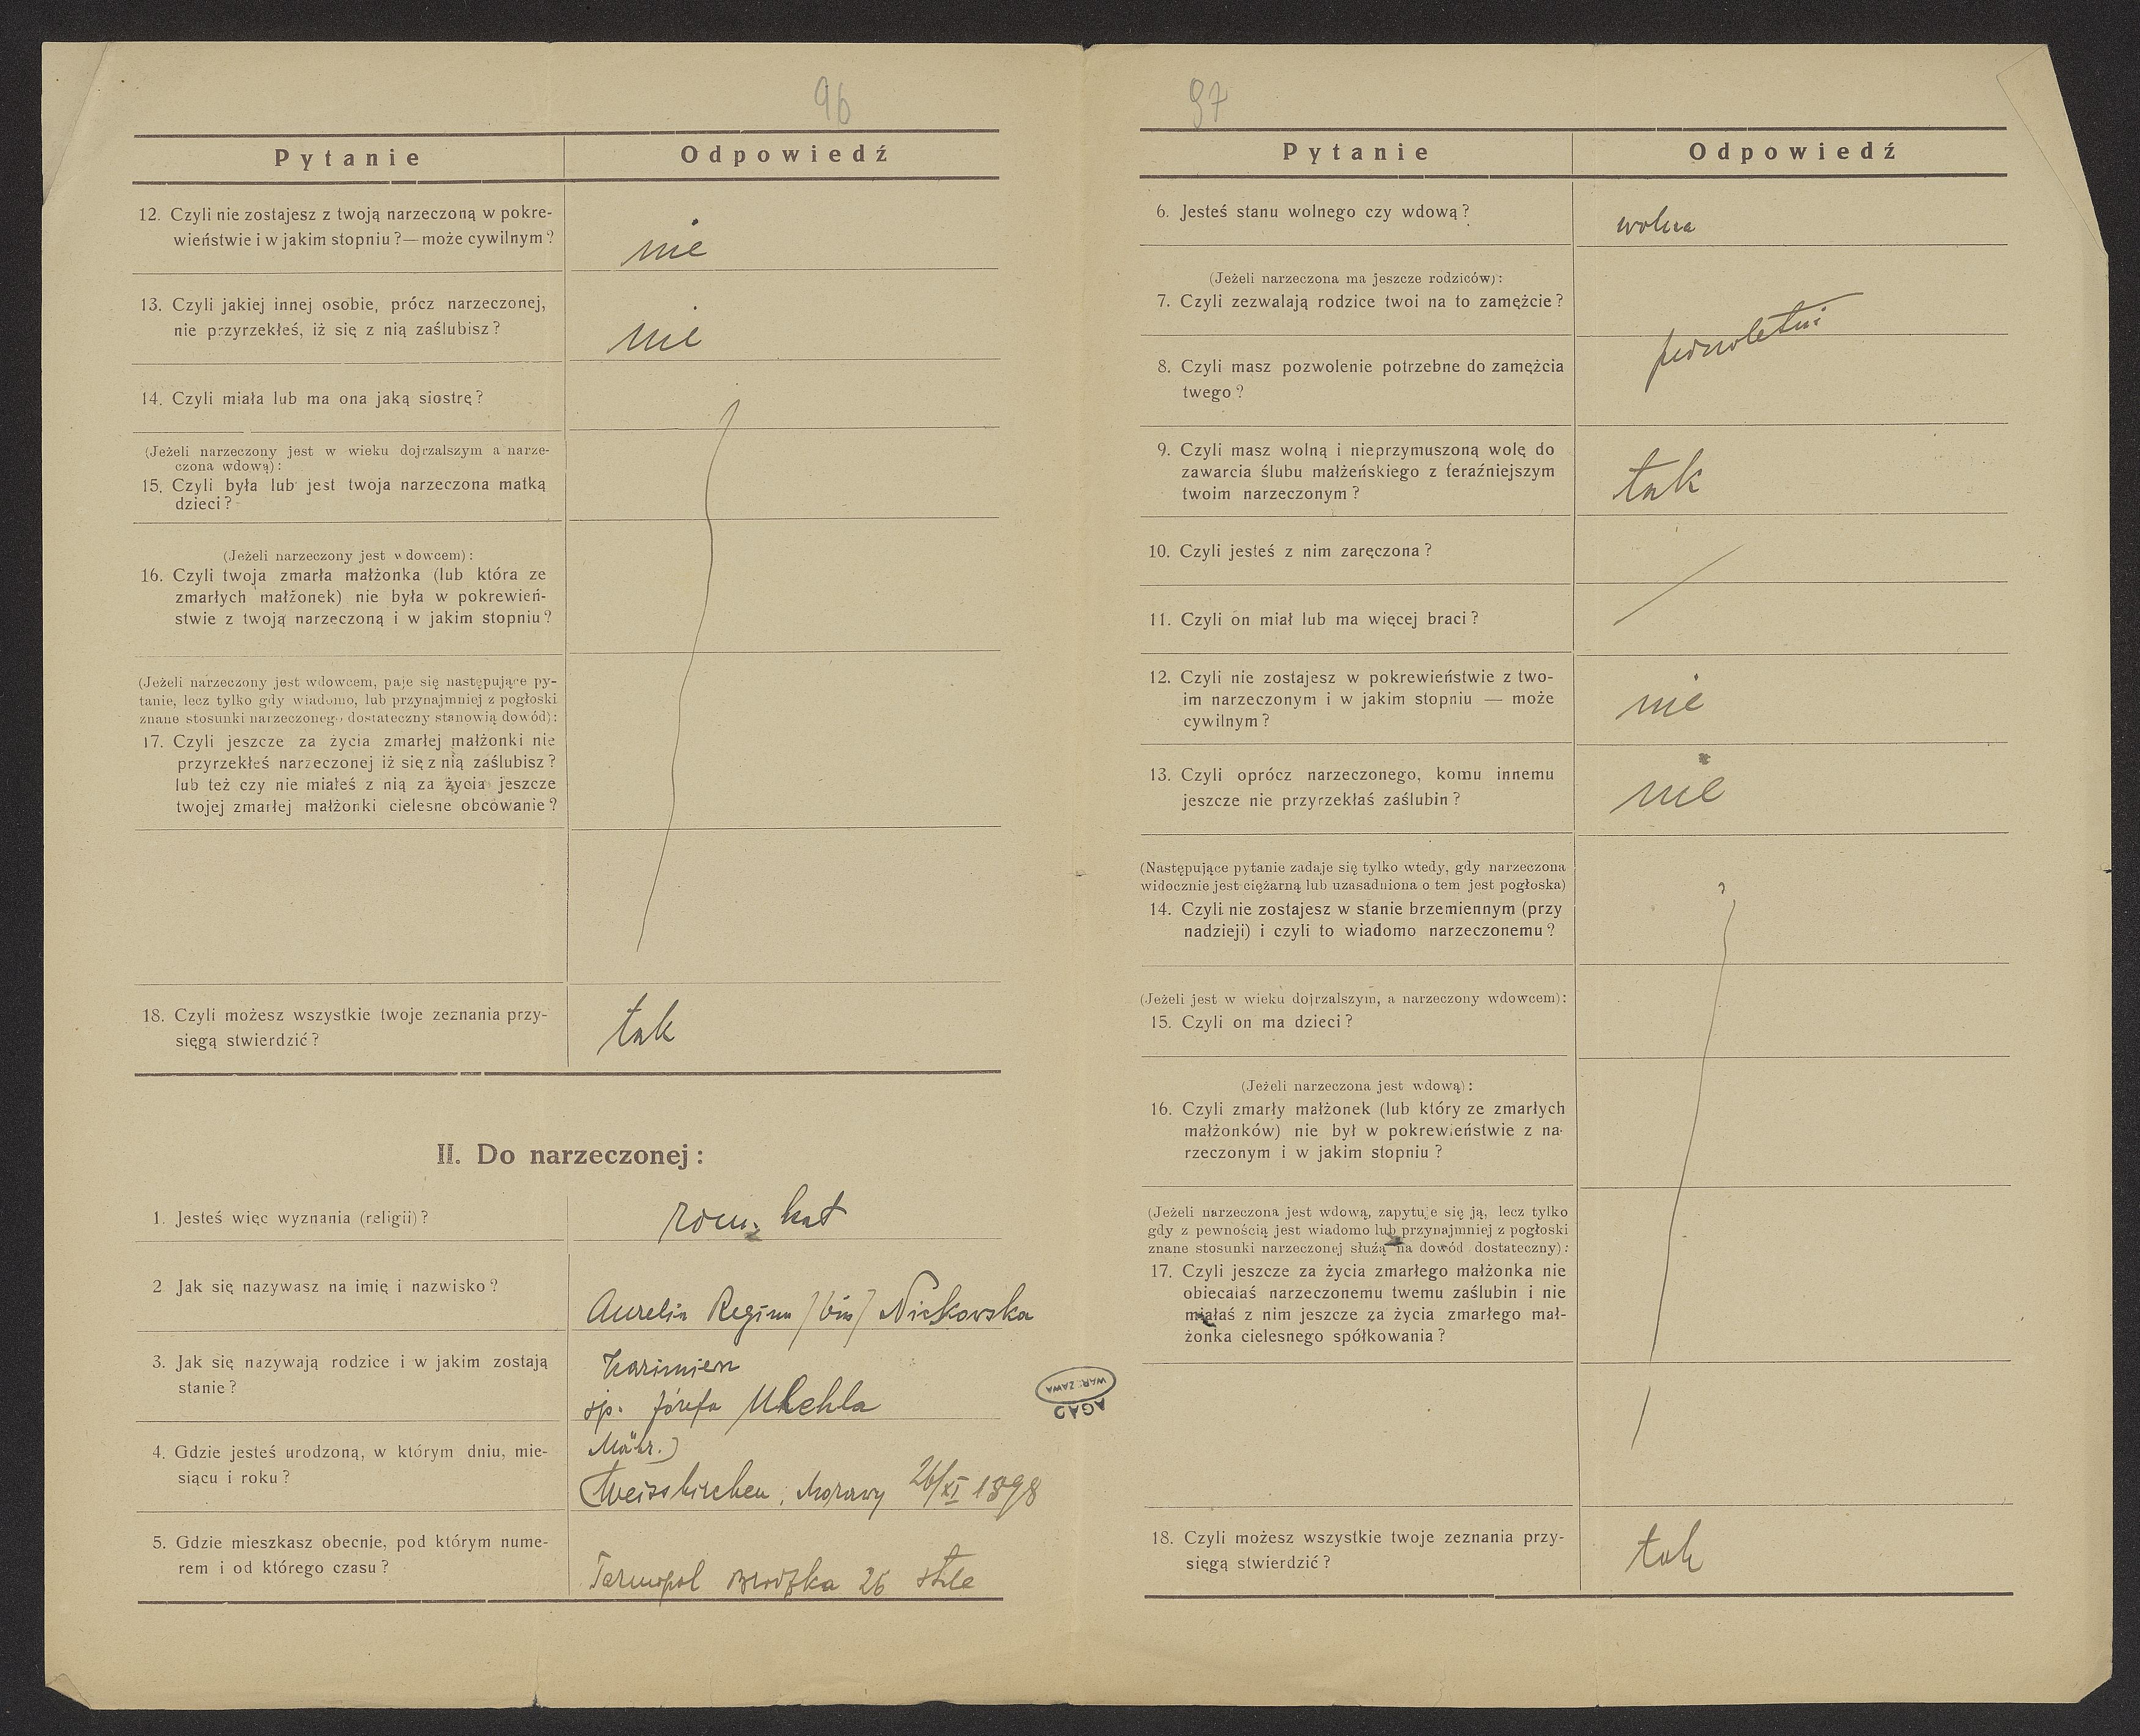 96
Pytanie Odpowiedź
12. Czyli nie zostajesz z twoją narzeczoną w pokre-
wieństwie i w jakim stopniu?—może cywilnym?
nie
13. Czyli jakiej innej osobie, prócz narzeczonej,
nie przyrzekłeś, iż się z nią zaślubisz?
nie
14. Czyli miała lub ma ona jaką siostrę?
(Jeżeli narzeczony jest w wieku dojrzalszym a narze-
czona wdową):
15. Czyli była lub jest twoja narzeczona matką
dzieci?
(Jeżeli narzeczony jest wdowcem):
16. Czyli twoja zmarła małżonka (lub która ze
zmarłych małżonek) nie była w pokrewień-
stwie z twoją narzeczoną i w jakim stopniu?
(Jeżeli narzeczony jest wdowcem, paje się następujące py-
tanie, lecz tylko gdy wiadomo, lub przynajmniej z pogłoski
znane stosunki narzeczonego dostateczny stanowią dowód):
17. Czyli jeszcze za życia zmarłej małżonki nie
przyrzekłeś narzeczonej iż się z nią zaślubisz?
lub też czy nie miałeś z nią za życia jeszcze
twojej zmarłej małżonki cielesne obcowanie?
18. Czyli możesz wszystkie twoje zeznania przy-
sięgą stwierdzić?
tak
II. Do narzeczonej:
1. Jesteś więc wyznania (religii)?
rom. kat
2. Jak się nazywasz na imię i nazwisko?
Aurelia Regina /bin/ Nickowska
3. Jak się nazywają rodzice i w jakim zostają
stanie?
Kazimierz
śp. Józefa
4. Gdzie jesteś urodzoną, w którym dniu, mie-
siącu i roku?
Mähr.)
(Weisskirchen, Morawy 26/XI 1898
5. Gdzie mieszkasz obecnie, pod którym nume-
rem i od którego czasu?
Tarnopol 26 stale
AGAD
WARSZAWA
97
Pytanie Odpowiedź
6. Jesteś stanu wolnego czy wdową?
wolna
(Jeżeli narzeczona ma jeszcze rodziców):
7. Czyli zezwalają rodzice twoi na to zamężcie?
8. Czyli masz pozwolenie potrzebne do zamężcia
twego?
9. Czyli masz wolną i nieprzymuszoną wolę do
zawarcia ślubu małżeńskiego z teraźniejszym
twoim narzeczonym?
tak
10. Czyli jesteś z nim zaręczona?
11. Czyli on miał lub ma więcej braci?
12. Czyli nie zostajesz w pokrewieństwie z two-
im narzeczonym i w jakim stopniu — może
cywilnym?
nie
13. Czyli oprócz narzeczonego, komu innemu
jeszcze nie przyrzekłaś zaślubin?
nie
(Następujące pytanie zadaje się tylko wtedy, gdy narzeczona
widocznie jest ciężarną lub uzasadniona o tem jest pogłoska)
14. Czyli nie zostajesz w stanie brzemiennym (przy
nadzieji) i czyli to wiadomo narzeczonemu?
(Jeżeli jest w wieku dojrzalszym, a narzeczony wdowcem):
15. Czyli on ma dzieci?
(Jeżeli narzeczona jest wdową):
16. Czyli zmarły małżonek (lub który ze zmarłych
małżonków) nie był w pokrewieństwie z na-
rzeczonym i w jakim stopniu?
(Jeżeli narzeczona jest wdową, zapytuje się ją, lecz tylko
gdy z pewnością jest wiadomo lub przynajmniej z pogłoski
znane stosunki narzeczonej służą na dowód dostateczny):
17. Czyli jeszcze za życia zmarłego małżonka nie
obiecałaś narzeczonemu twemu zaślubin i nie
miałaś z nim jeszcze za życia zmarłego mał-
żonka cielesnego spółkowania?
18. Czyli możesz wszystkie twoje zeznania przy-
sięgą stwierdzić?
tak